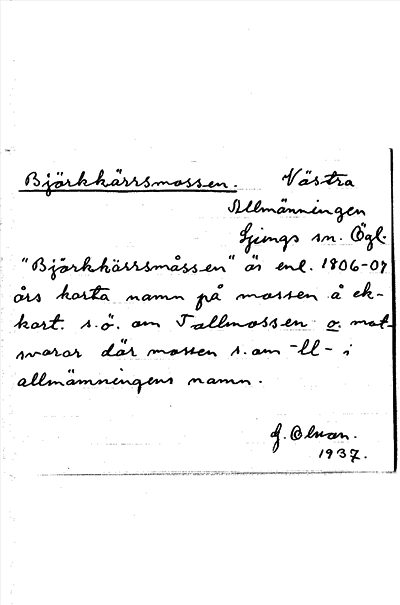 Björkkärrsmossen. Västra
Allmänningen
Ljungs sn. Ögl.
"Björkkärrsmåssen" är enl. 1806-07
års karta namn på mossen å ek-
kart. s.ö. om Tallmossen o. mot-
svarar där mossen s. om -ll- i
allmänningens namn.
G. Olson.
1937.